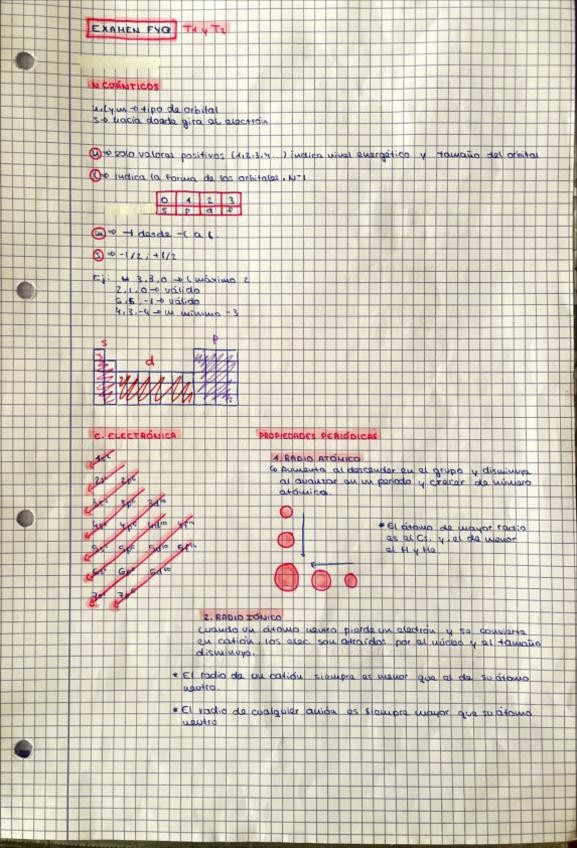 EXAMEN FYQ T1 y T2
N.CUÁNTICOS
n, l y m → tipo de orbital
s → hacía donde gira el electrón
n → solo valores positivos (1,2,3,4...) indica nivel energético y tamaño del orbital
l → indica la forma de los orbitales, N-1
0 1 2 3
s p d f
m → desde -l a l
s → -1/2, +1/2
Ej: 3,3,0 → l máximo 2
2,1,0 → válido
-1 → válido
4,3,-4 → m mínimo -3
s d p
C. ELECTRÓNICA
1s²
2s² 2p⁶
3s² 3p⁶ 3d¹⁰
4s² 4p⁶ 4d¹⁰ 4f¹⁴
5s² 5p⁶ 5d¹⁰ 5f¹⁴
6s² 6p⁶ 6d¹⁰
7s² 7p⁶
PROPIEDADES PERIÓDICAS
1. RADIO ATÓMICO
Aumenta al descender en el grupo y disminuye
al avanzar en un periodo y crecer de número
atómico.
* El átomo de mayor radio
es el Cs, y el de menor
el H y He.
2. RADIO IÓNICO
Cuando un átomo neutro pierde un electrón y se convierte
en catión, los elec. son atraídos por el núcleo y el tamaño
disminuye.
* El radio de un catión siempre es menor que el de su átomo
neutro.
* El radio de cualquier anión es siempre mayor que su átomo
neutro